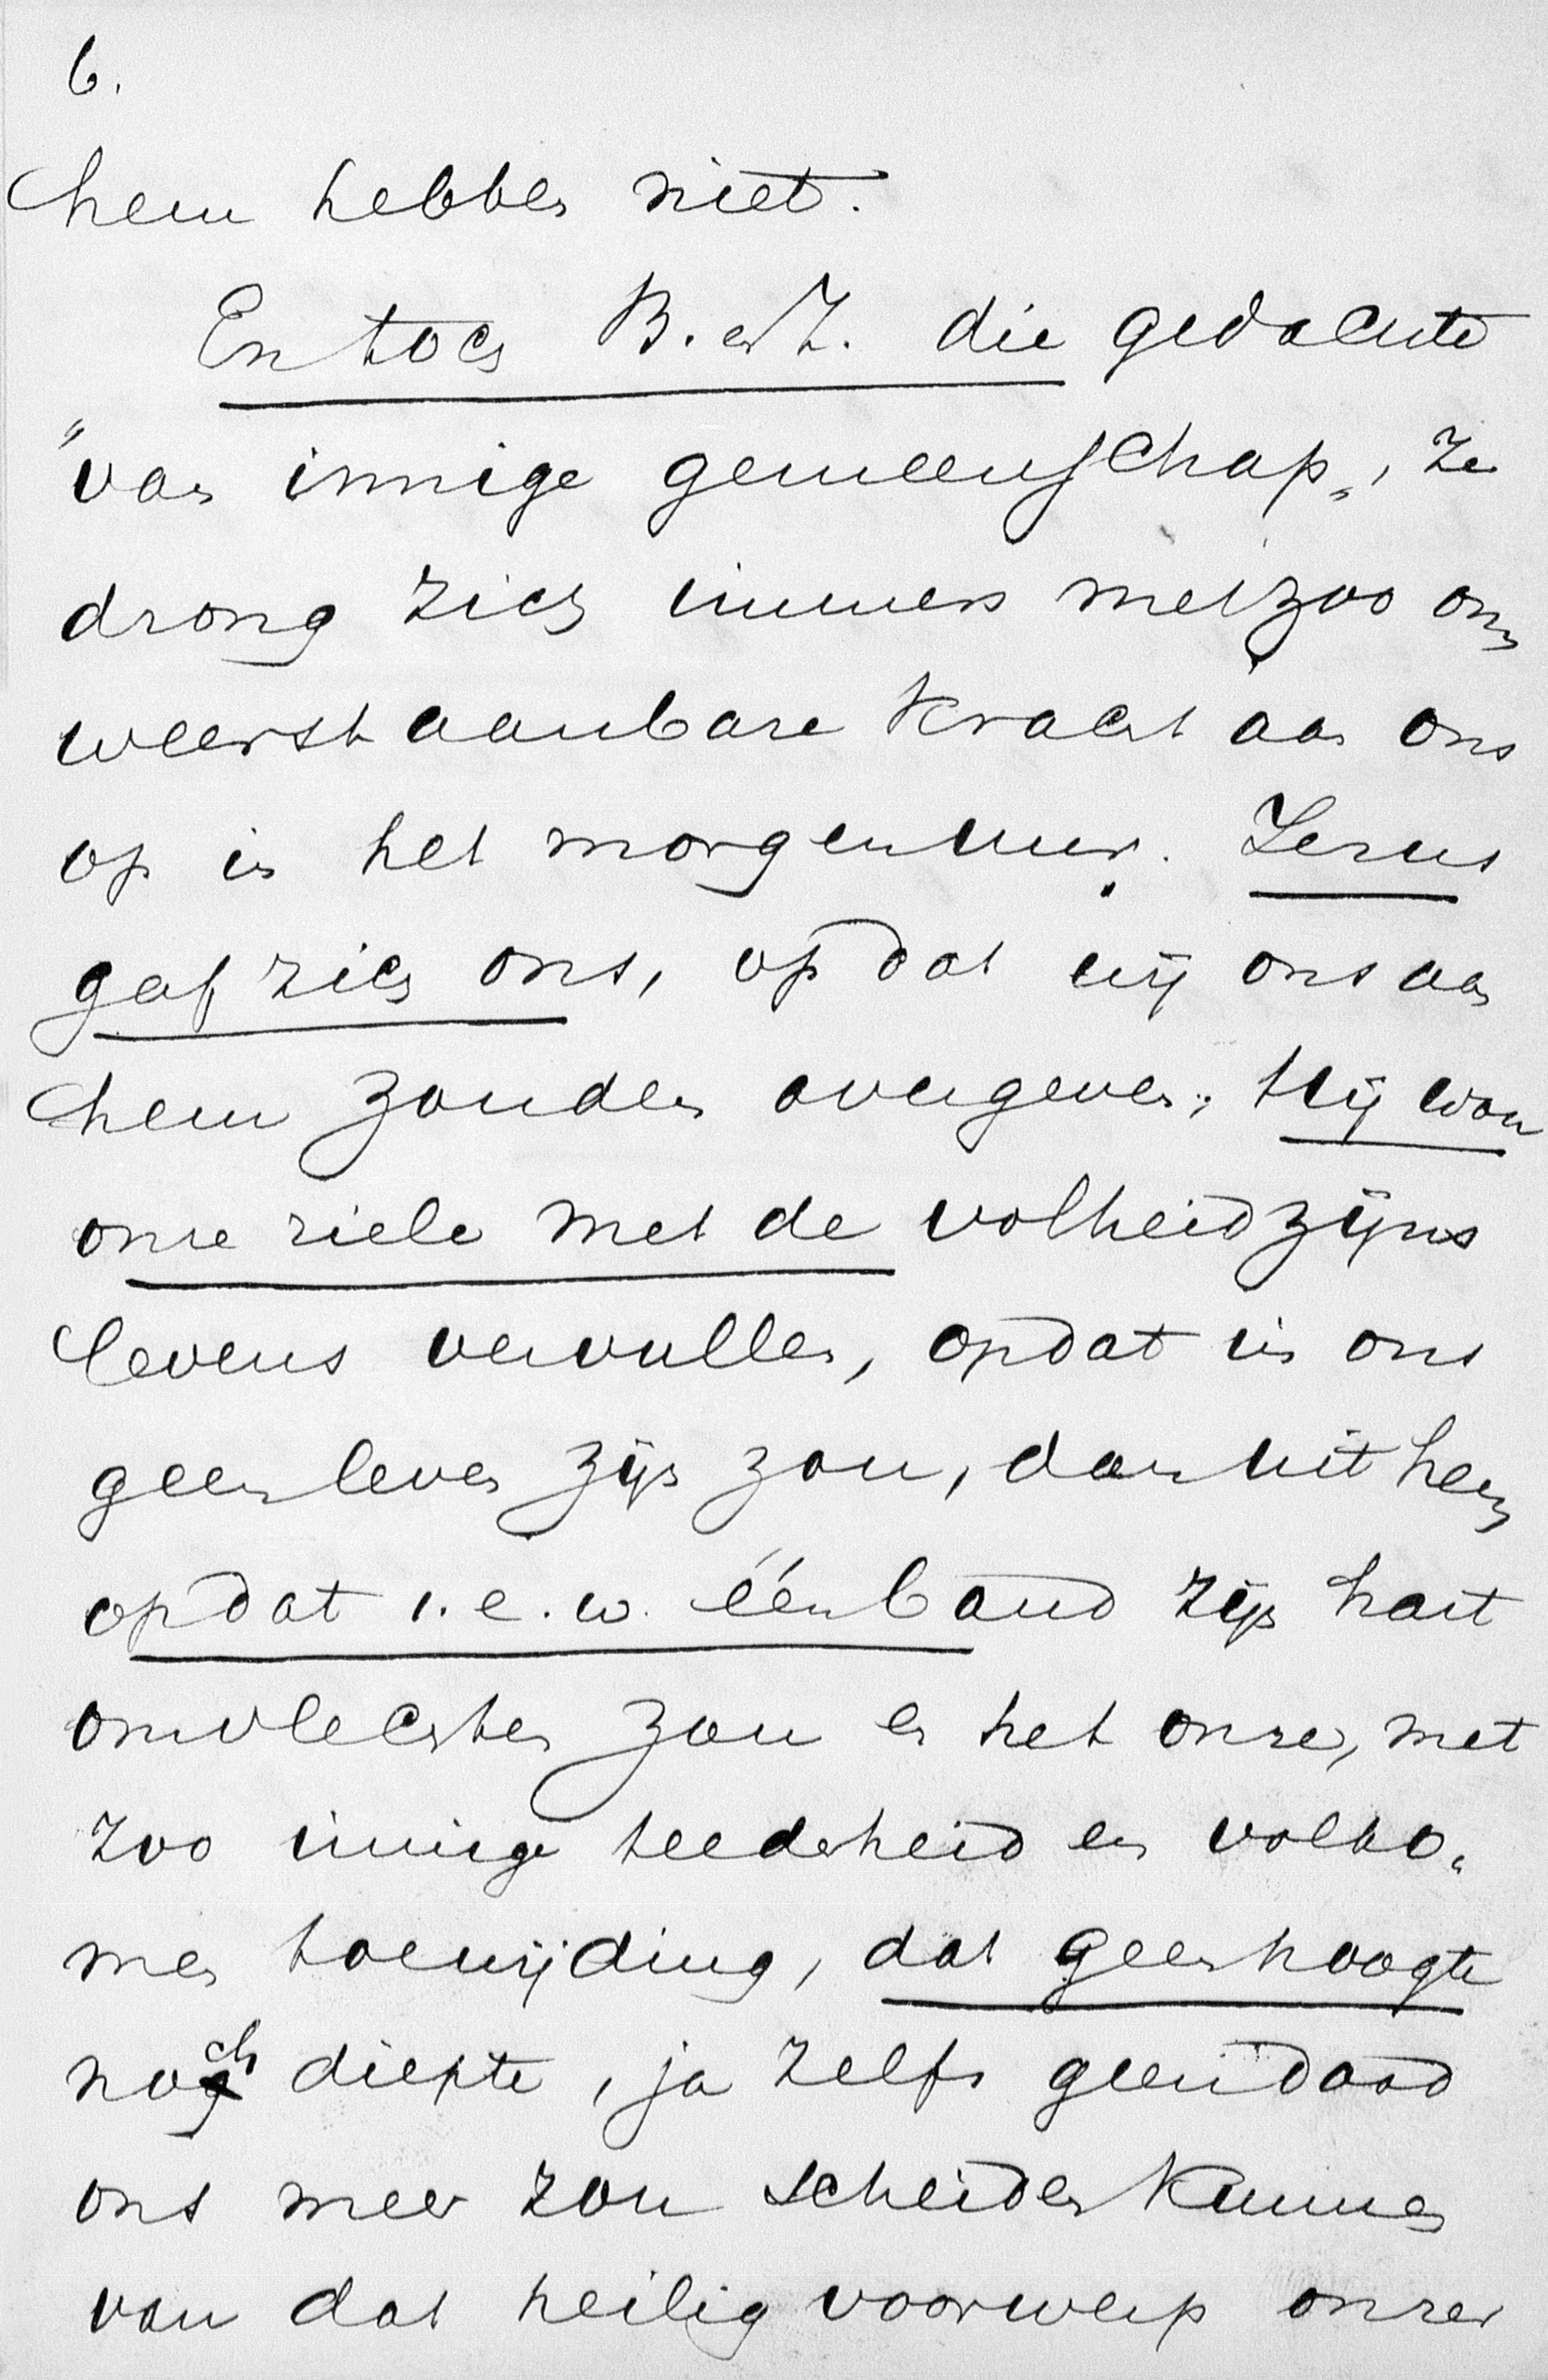 6.
hem hebben niet.
En toch B. en Z. die gedachte
"van innige gemeenschap", ze
drong zich immers met zoo on-
weerstaanbare kracht aan ons
op in het morgenuur. Jezus
gaf zich ons, opdat wij ons aan
hem zouden overgeven; Hij wou
onze ziele met de volheid zijns
levens vervullen, opdat in ons
geen leven zijn zou, dan uit hem
opdat i. e. w. één band zijn hart
omvlechten zou en het onze, met
zoo innige teederheid en volko-
men toewijding, dat geen hoogte
noch diepte, ja zelfs geen dood
ons meer zou scheiden kunnen
van dat heilig voorwerp onzer